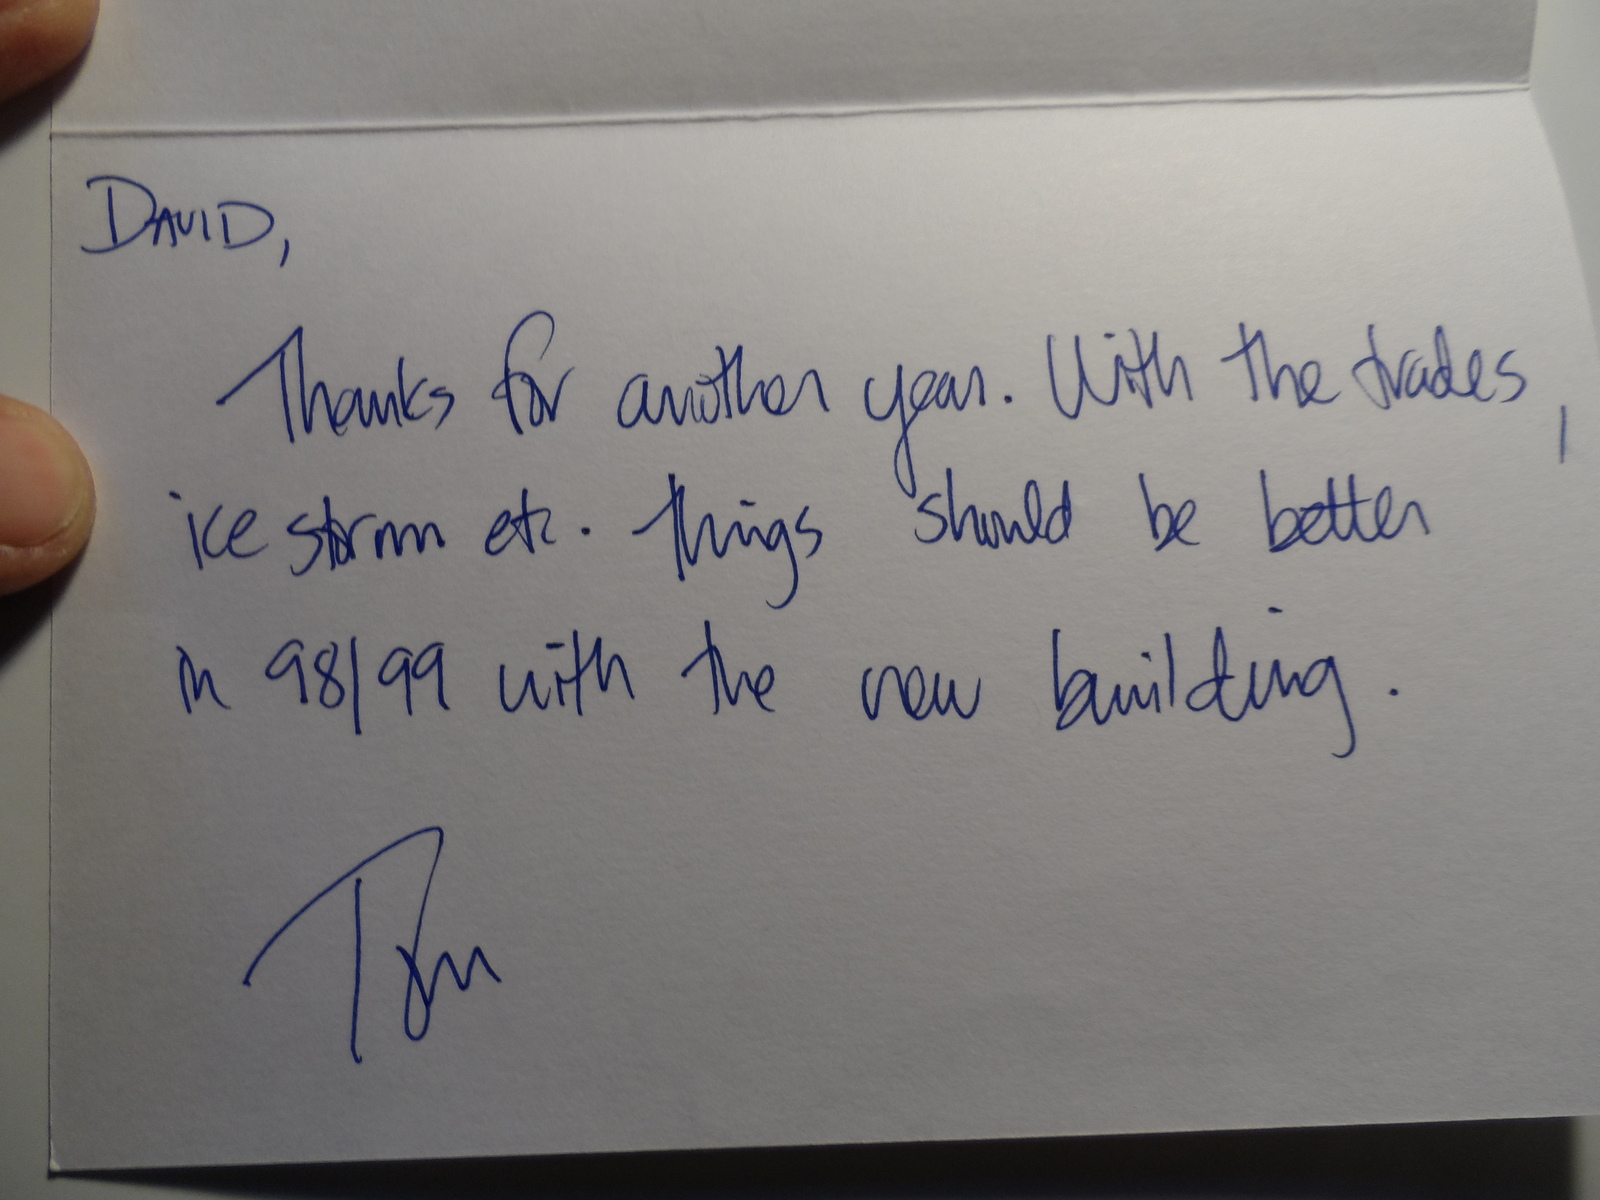 DAVID,
Thanks for another year. With the trades,
ice storm etc. things should be better
in 98/99 with the new building.
Tom